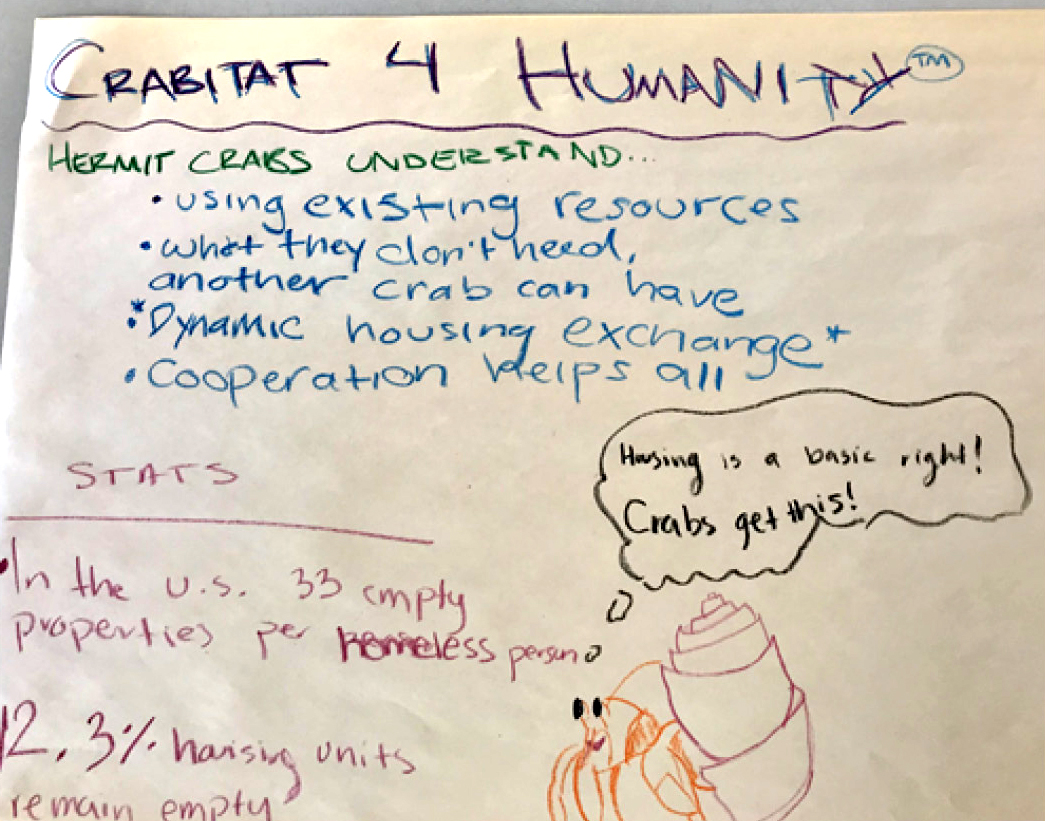 CRABITAT 4 HUMANITY TM
HERMIT CRABS UNDERSTAND...
• using existing resources
• what they don't need,
another crab can have
• *Dynamic housing exchange*
• Cooperation helps all
Housing is a basic right!
Crabs get this!
STATS
• In the U.S. 33 empty
properties per homeless person
12.3% housing units
remain empty